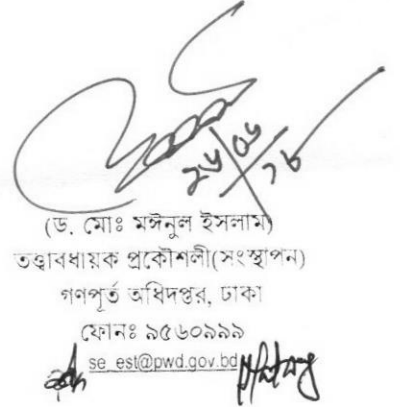 ২৬/০৬/১৮
(ড. মোঃ মঈনুল ইসলাম)
তত্ত্বাবধায়ক প্রকৌশলী(সংস্থাপন)
গণপূর্ত অধিদপ্তর, ঢাকা
ফোনঃ ৯৫৬০৯৯৯
se_est@pwd.gov.bd